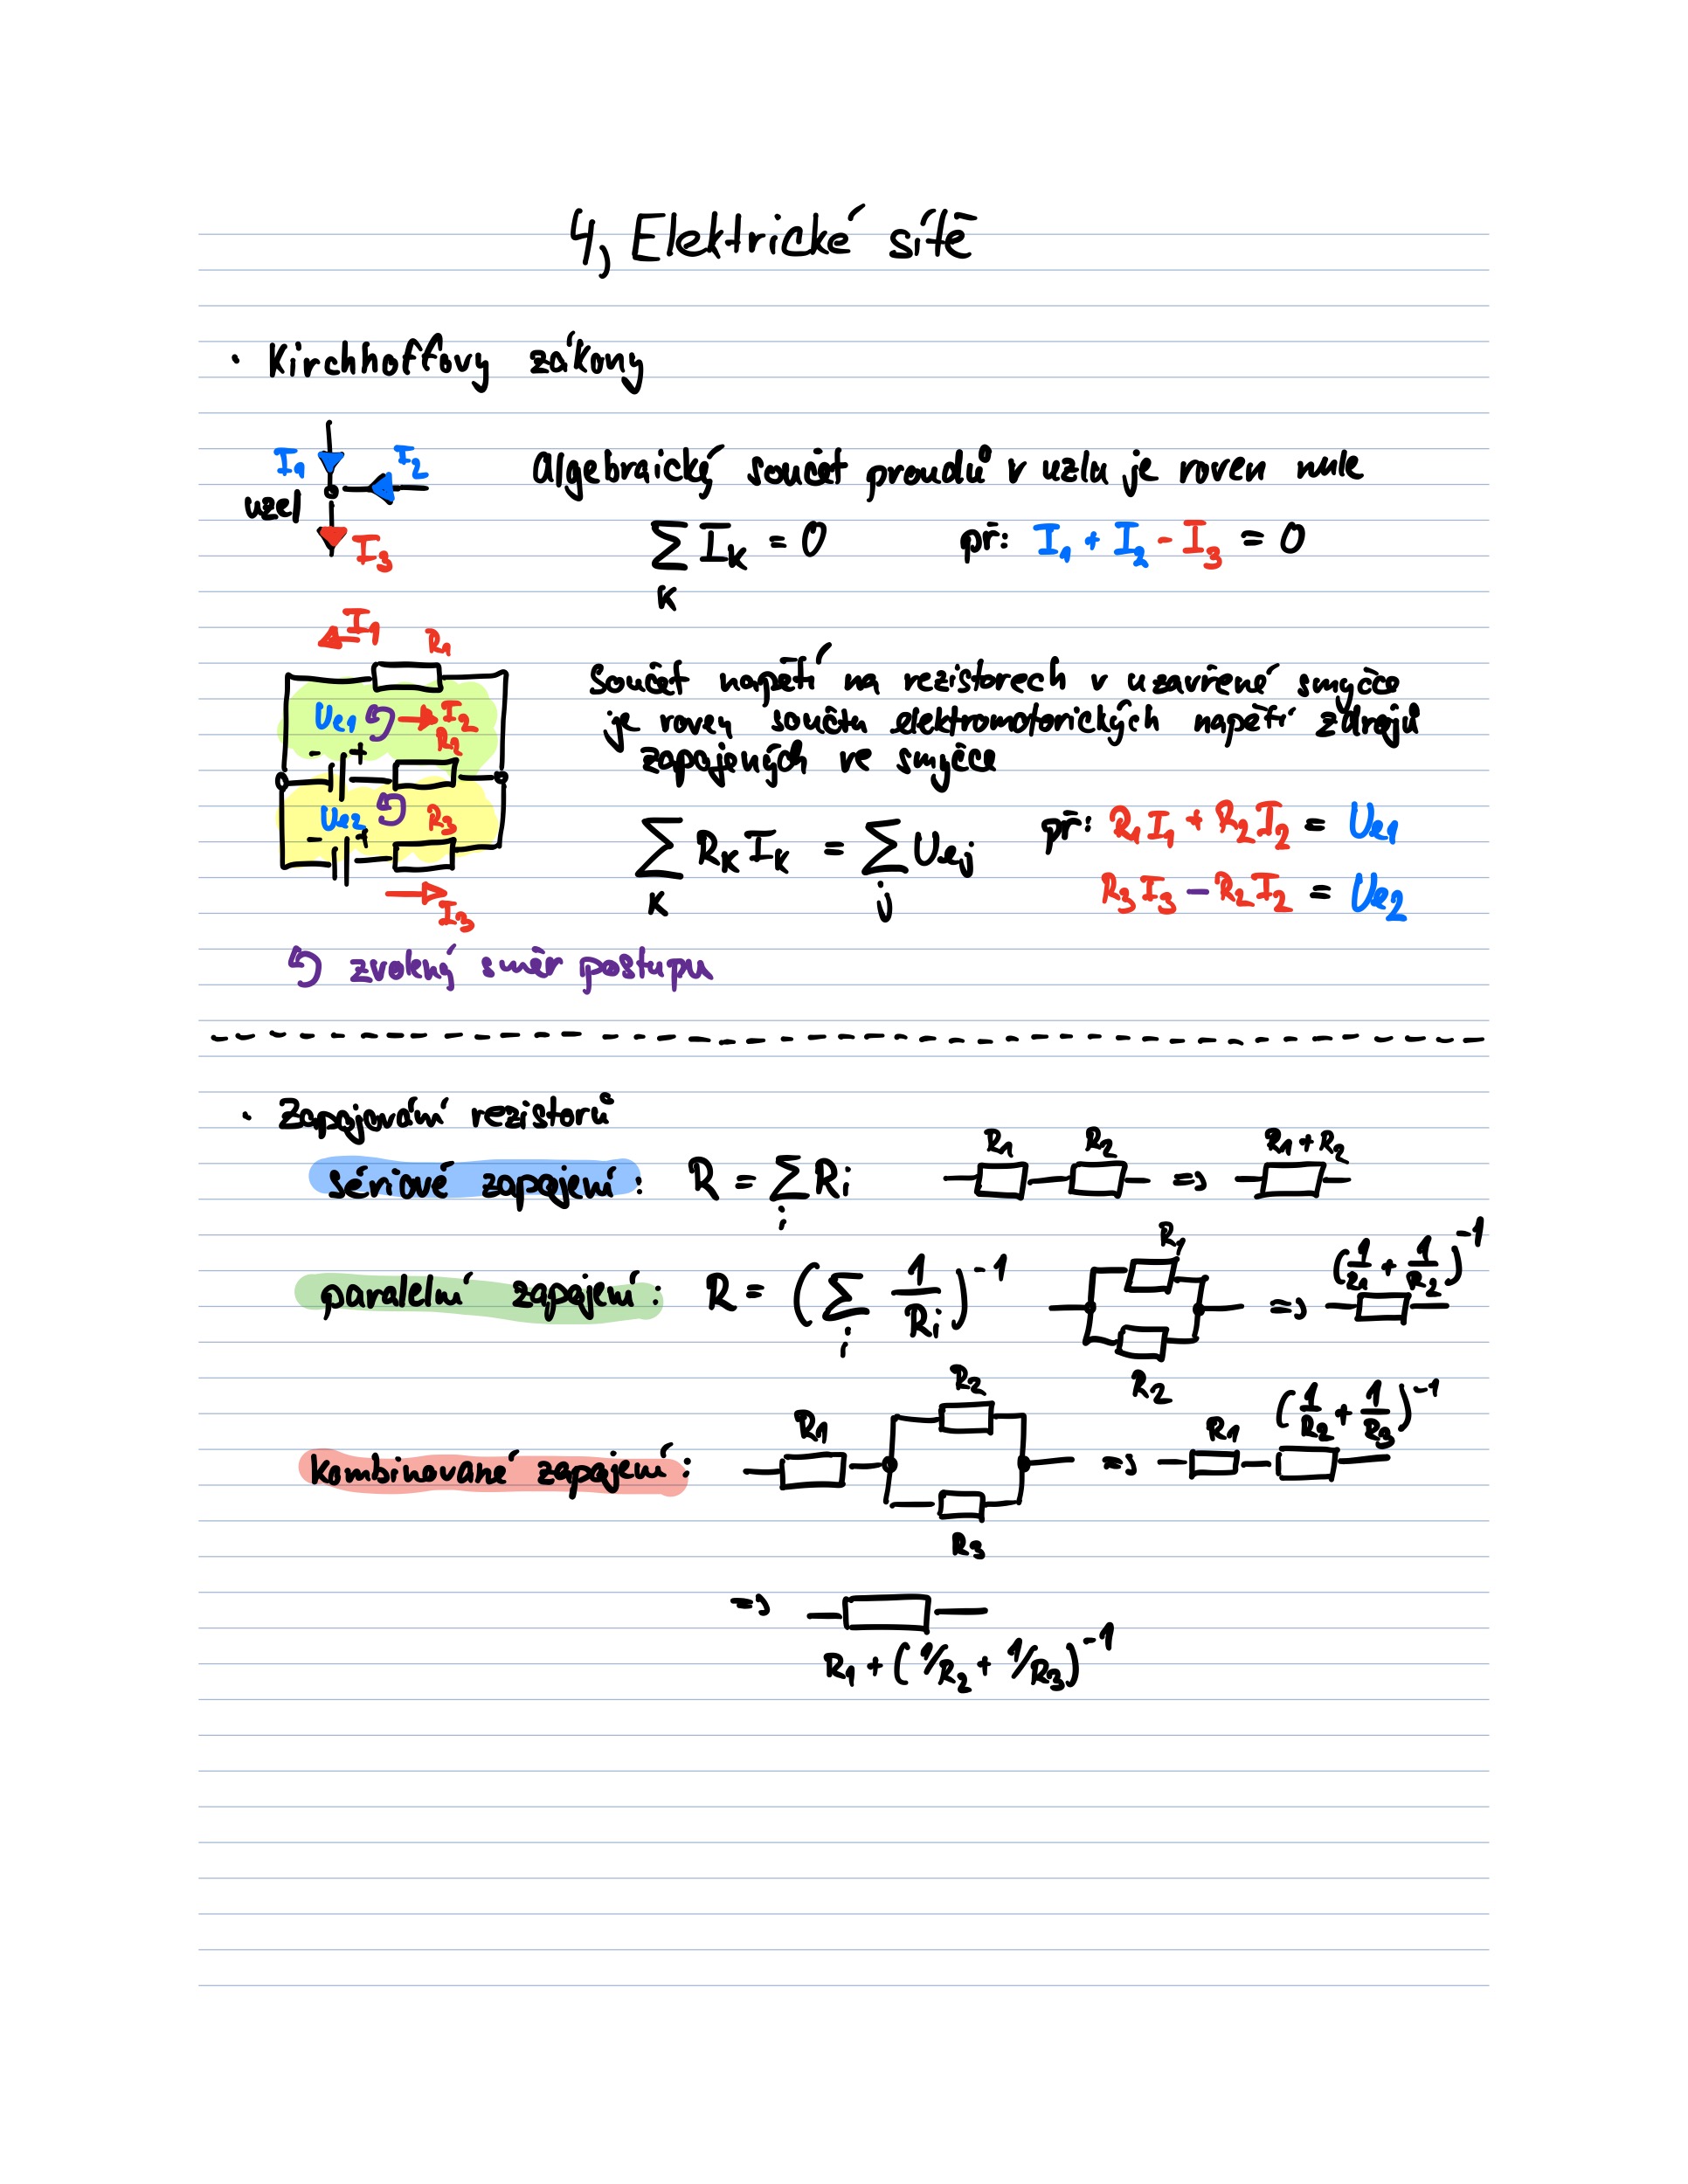 4, Elektrické sítě
· Kirchhoffovy zákony
I₁ I₂
uzel
I₃
algebraický součet proudů v uzlu je roven nule
∑ₖ Iₖ = 0 př: I₁ + I₂ - I₃ = 0
I₁ R₁
Ue1 I₂
R₂
- +
Ue2 R₃
- +
I₃
Součet napětí na rezistorech v uzavřené smyčce
je roven součtu elektromotorických napětí zdrojů
zapojených ve smyčce
∑ₖ RₖIₖ = ∑ⱼ Uej
př: R₁I₁ + R₂I₂ = Ue1
R₃I₃ - R₂I₂ = Ue2
zvolený směr postupu
· Zapojování rezistorů
sériové zapojení: R = ∑ᵢ Rᵢ R₁ R₂ => R₁+R₂
paralelní zapojení: R = (∑ᵢ 1/Rᵢ)⁻¹ R₁ R₂ => (1/R₁ + 1/R₂)⁻¹
kombinované zapojení: R₁ R₂ R₃ => R₁ (1/R₂ + 1/R₃)⁻¹
=>
R₁ + (1/R₂ + 1/R₃)⁻¹